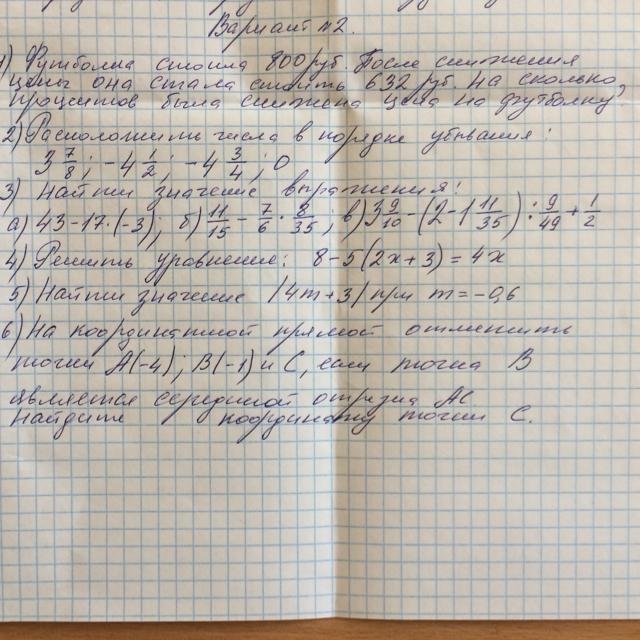 Вариант №2.
1) Футболка стоила 800 руб. После снижения
цены она стала стоить 632 руб. На сколько
процентов была снижена цена на футболку?
2) Расположить числа в порядке убывания:
3 7/8; -4 1/2; -4 3/4; 0
3) Найти значение выражения:
а) 43-17·(-3); б) 11/15 - 7/6 · 8/35; в) 3 9/10 - (2-1 11/35) : 9/49 + 1/2
4) Решить уравнение: 8-5(2x+3)=4x
5) Найти значение |4m+3| при m=-0,6
6) На координатной прямой отметить
точки A(-4); B(-1) и C, если точка B
является серединой отрезка AC
Найдите координату точки C.